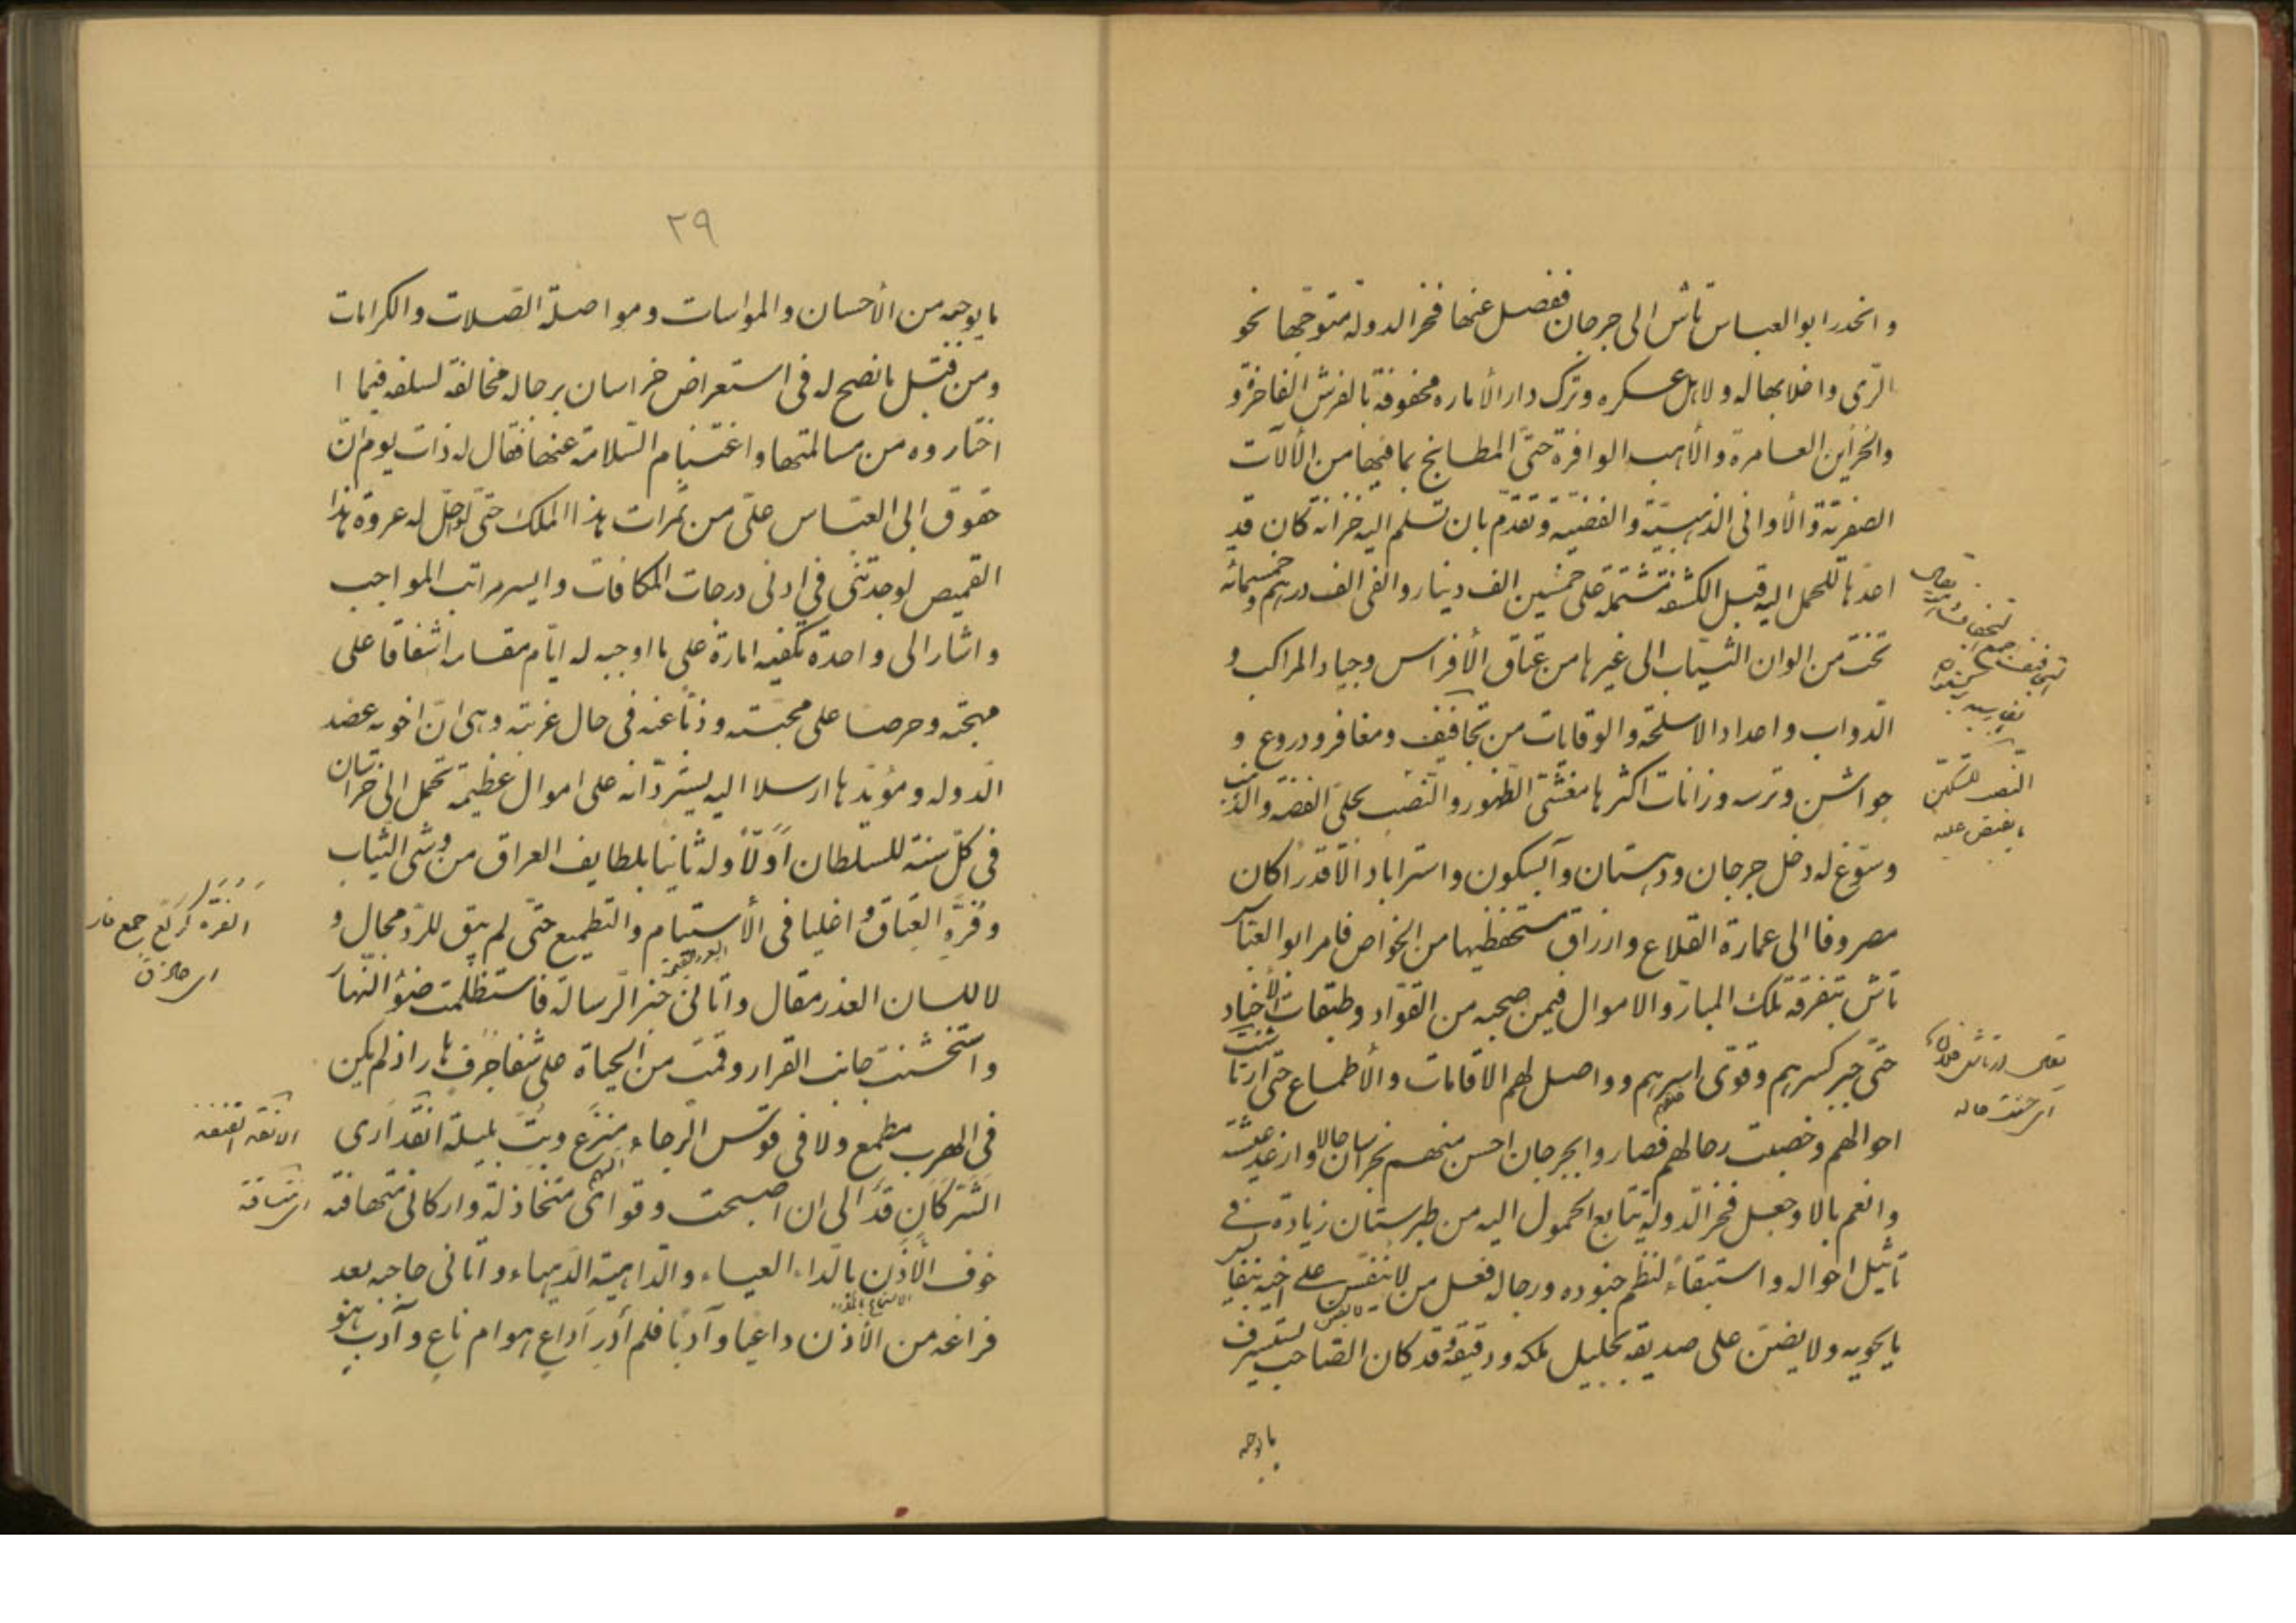 وانحدر ابو العباس تاش الى جرجان ففصل عنها فخر الدولة متوجّها نحو
الرّى واخلابها له ولاهل عسكره وترك دار الأماره محفوفة بالفرش الفاخرة و
والخزاين العامرة والأهب الوافرة حتّى المطابخ بما فيها من الألآت
الصفريّة والأوانى الذهبيّة والفضيّة وتقدّم بان تسلم اليه خزانة كان قد
اعدّها للحمل اليه قبل الكشفة مشتملة على خمسين الف دينار والفى الف درهم وخمسمائه
تخت من الوان الثياب الى غيرها من عتاق الأفراس وجياد المراكب و
الدّواب واعداد الاسلحة والوقايات من تجافيف ومغافر ودروع و
جواشن وترسه وزانات اكثرها مغشّى الظهور والنّصب بحلىّ الفضّه والذهب
وسوّغ له دخل جرجان ودهستان وآبسكون واستراباد الّا قدراً كان
مصروفا الى عمارة القلاع وارزاق مستحفظيها من الخواص فامر ابو العباس
تاش بتفرقة تلك المبارّ والاموال فيمن صحبه من القوّاد وطبقات الأجناد
حتّى جبر كسرهم وقوّى اسرهم وواصل لهم الاقامات والأطماع حتى ارتاشت
احوالهم وخصبت رحالهم فصاروا بجرجان احسن منهم بخراسان حالا وارغد عيشة
وانعم بالا وجعل فخر الدّولة يتابع الحمول اليه من طبرستان زيادة فى
تأثيل احواله واستبقاءً لنظم جنوده ورجاله فعل من لا ينفس على اخيه بنفايس
ما يحويه ولا يضنّ على صديقه بجليل ملكه ودقيقه وقد كان الصّاحب يستسرف
ما يوجبه
التجافيف جمع
النصب للسكين
ما يقبض عليه
يقال ارتاش فلان
اى حسنت حاله
٢٩
ما يوجبه من الأحسان والمواسات ومواصلة الصّلات والكرامات
ومن قبل ما نصح له فى استعراض خراسان برجاله مخالفة لسلفه فيما ا
اختاروه من مسالمتها واغتنام السّلامة عنها فقال له ذات يوم انّ
حقوق ابى العبّاس علىّ من ثمرات هذا الملك حتّى لو احلّ له عروة هذا
القميص لوجدتنى فى ادنى درجات المكافات وايسر مراتب المواجب
واشار الى واحدة تكفيه امارة على ما اوجبه له ايّام مقامه اشفاقا على
مهجته وحرصا على محبّته وذبّا عنه فى حال غربته وهى انّ اخويه عضد
الدّوله ومؤيّدها ارسلا اليه يستردّانه على اموال عظيمة تحمل الى خراسان
فى كلّ سنة للسّلطان اوّلاً وله ثانيا بلطايف العراق من وشى الثياب
وفرّه العتاق واغليا فى الأستيام والتطميع حتّى لم يبق للرّد مجال و
لا للسان العذر مقال واتانى خبر الرّسالة فاستظلمت ضوء النّهار
واستخشنت جانب القرار وقمت من الحياة على شفا جرف هار اذ لم يكن
فى الهرب مطمع ولا فى قوس الرّجاء منزع وبتّ بليلة انقد ارى
الشّركان قدّ الى ان اصبحت وقواى متخاذلة واركانى متهافتة
خوف الأذن بالدّاء العياء والدّاهية الدّهياء واتانى حاجبه بعد
فراغه من الأذن داعيا وآدبا فلم أدر أداع هو ام ناع وآدب هو
الفره كركّع جمع فاره
اى حاذق
الانقد القنفد
اى متساقة